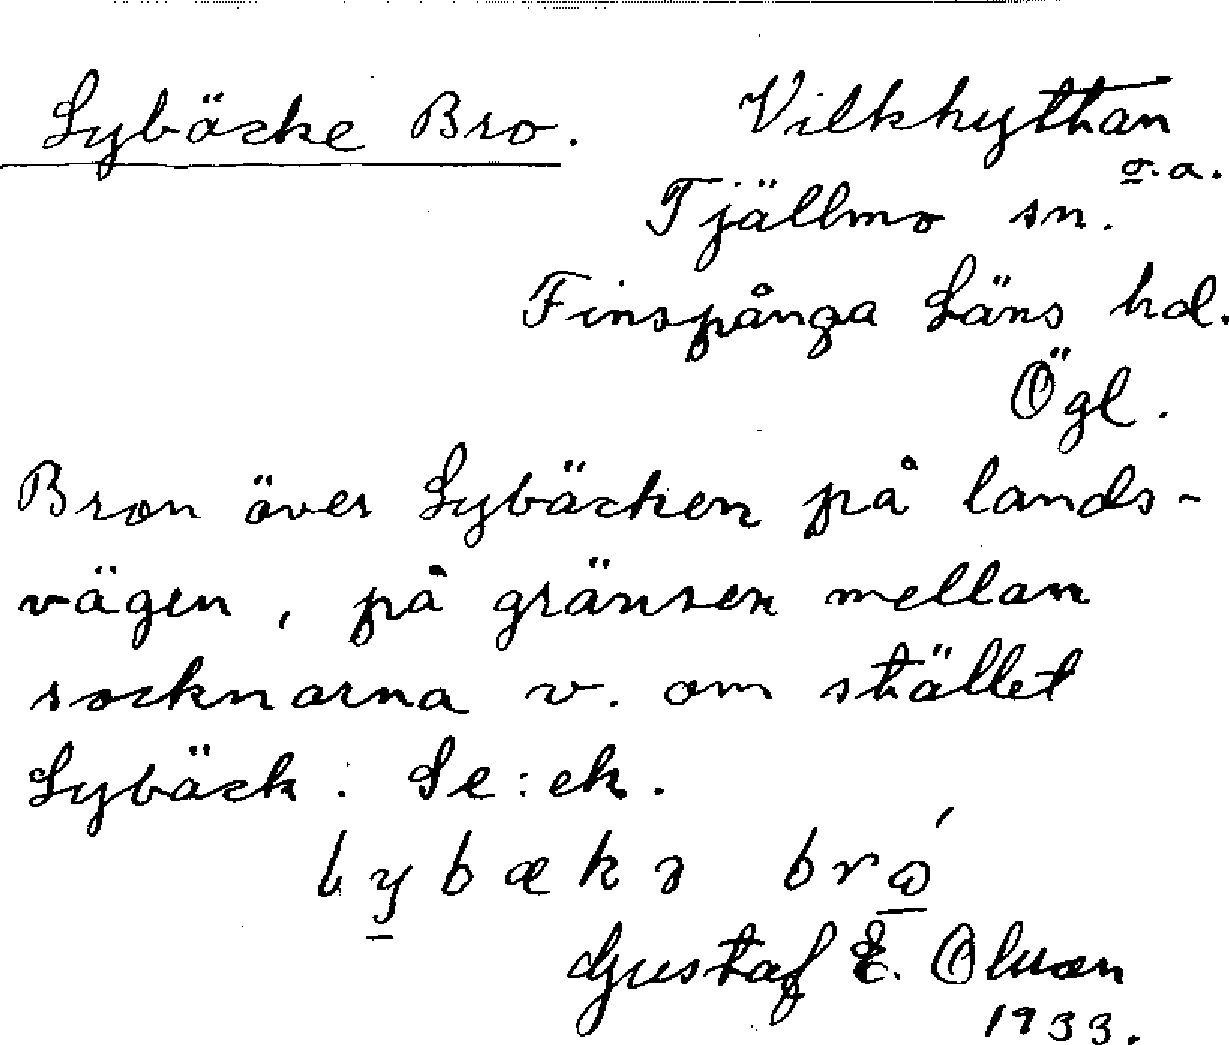 Lybäcke Bro. Vilkhyttan
o.a.
Tjällmo sn.
Finspånga Läns hd.
Ögl.
Bron över Lybäcken på lands-
vägen, på gränsen mellan
socknarna v. om stället
Lybäck. Se: ek.
Gustaf E. Olsson
1933.